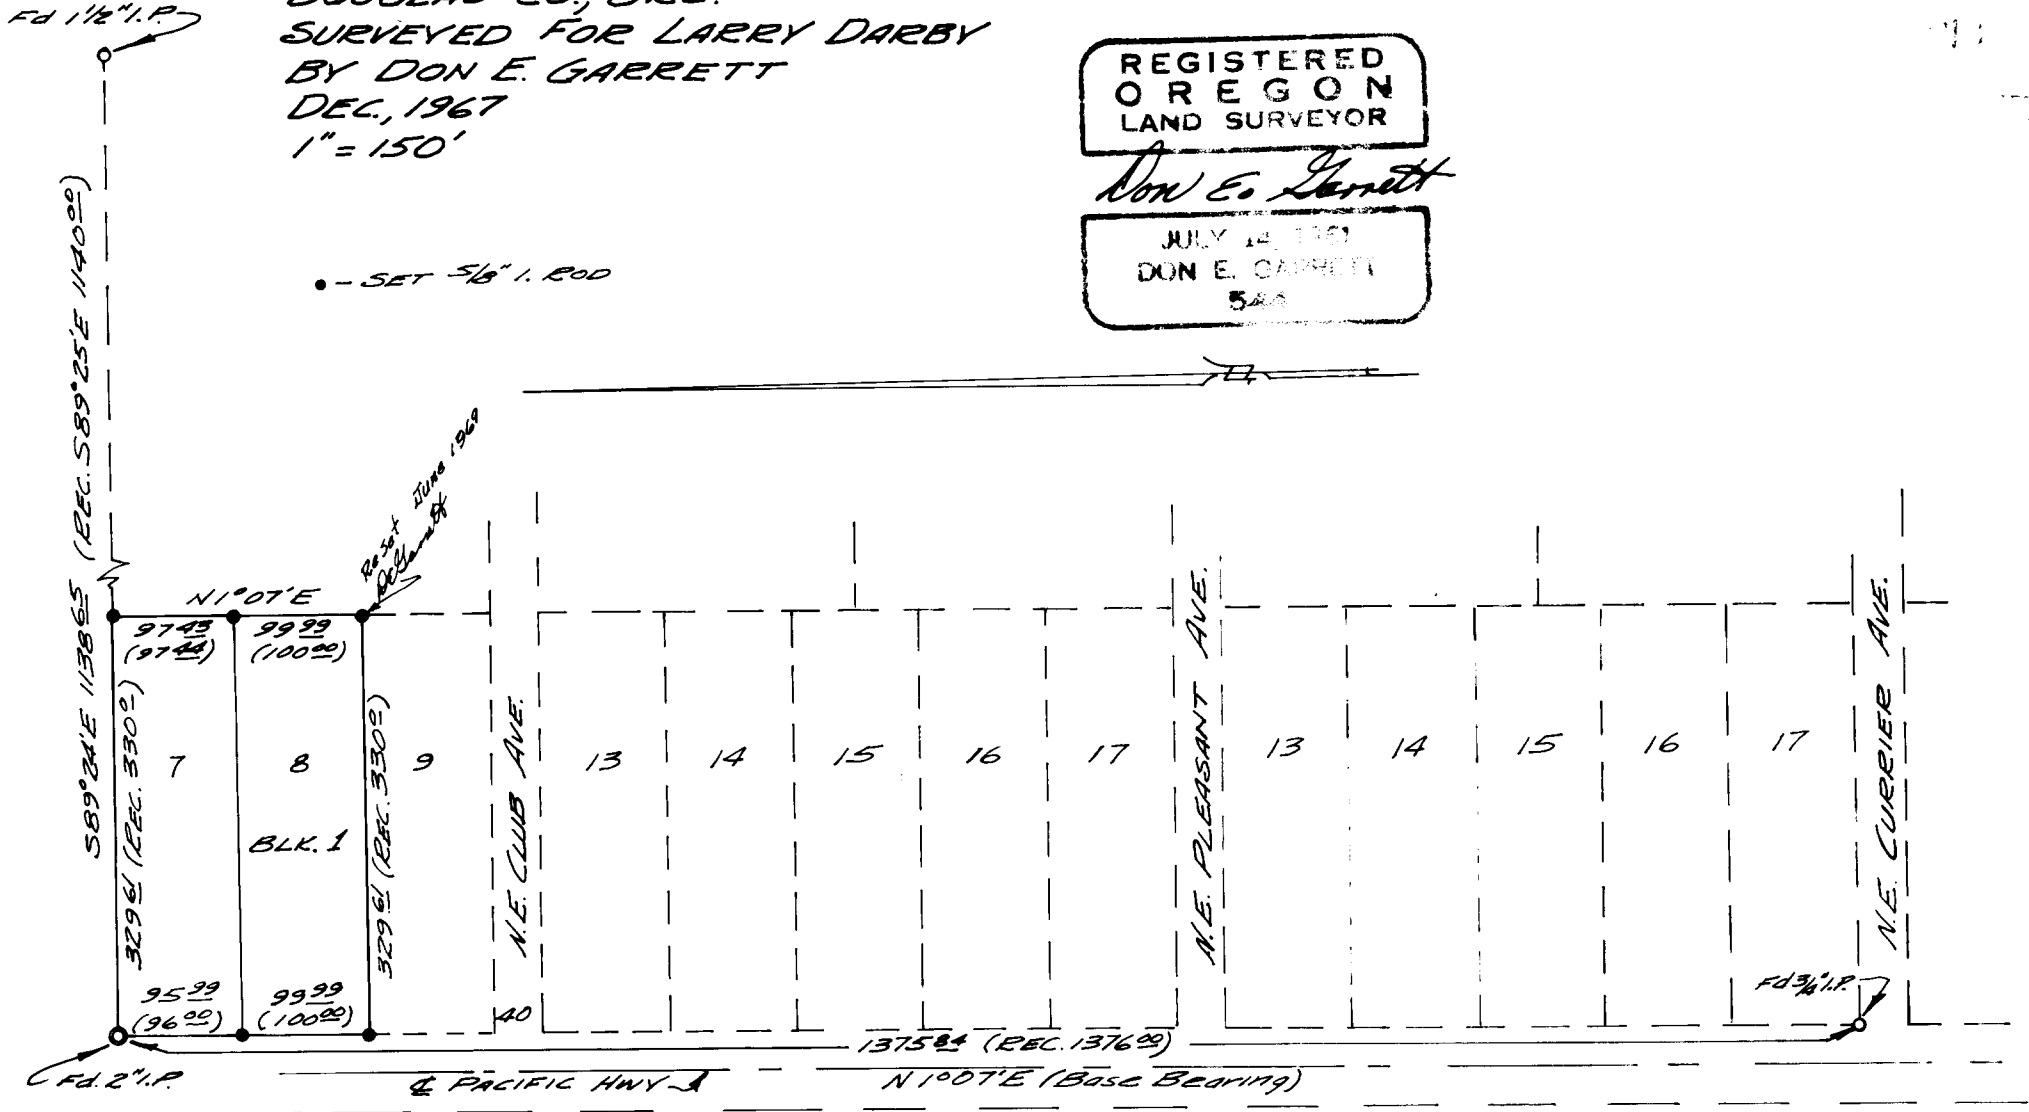 Fd 1½" I.P.
DOUGLAS CO., ORE.
SURVEYED FOR LARRY DARBY
BY DON E. GARRETT
DEC., 1967
1" = 150'
REGISTERED
OREGON
LAND SURVEYOR
Don E. Garrett
JULY 14, 1961
DON E. GARRETT
● - SET 5/8" I. ROD
S89°24'E 1138.65 (REC. S89°25'E 1140.00)
Reset June 1969
DeGarrett
N1°07'E
97.43
(97.44)
99.99
(100.00)
329.61 (REC. 330.0)
329.61 (REC. 330.0)
7
8
9
BLK. 1
N.E. CLUB AVE.
13
14
15
16
17
N.E. PLEASANT AVE.
13
14
15
16
17
N.E. CURRIER AVE.
95.99
(96.00)
99.99
(100.00)
40
Fd ¾" I.P.
1375.84 (REC. 1376.00)
Fd. 2" I.P.
℄ PACIFIC HWY
N1°07'E (Base Bearing)